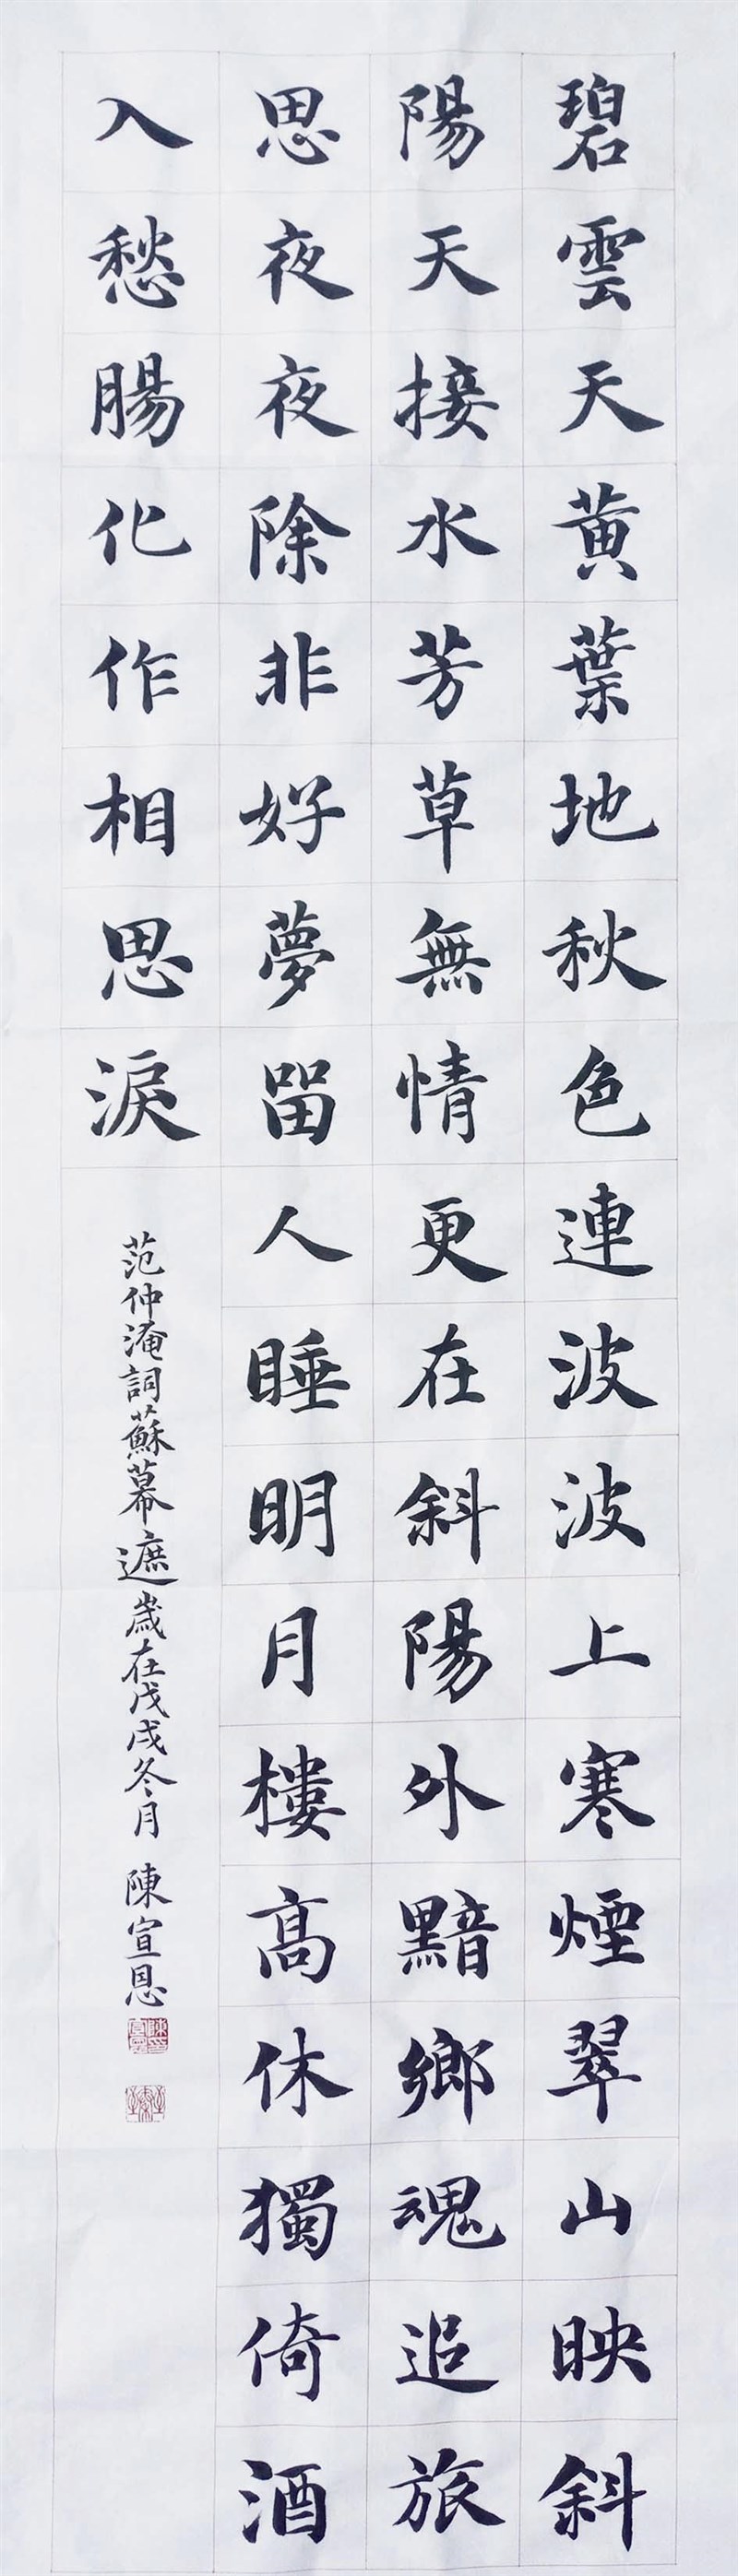 碧雲天黄葉地秋色連波波上寒煙翠山映斜
陽天接水芳草無情更在斜陽外黯鄉魂追旅
思夜夜除非好夢留人睡明月樓高休獨倚酒
入愁腸化作相思淚
范仲淹詞蘇幕遮歲在戊戌冬月 陳宣恩